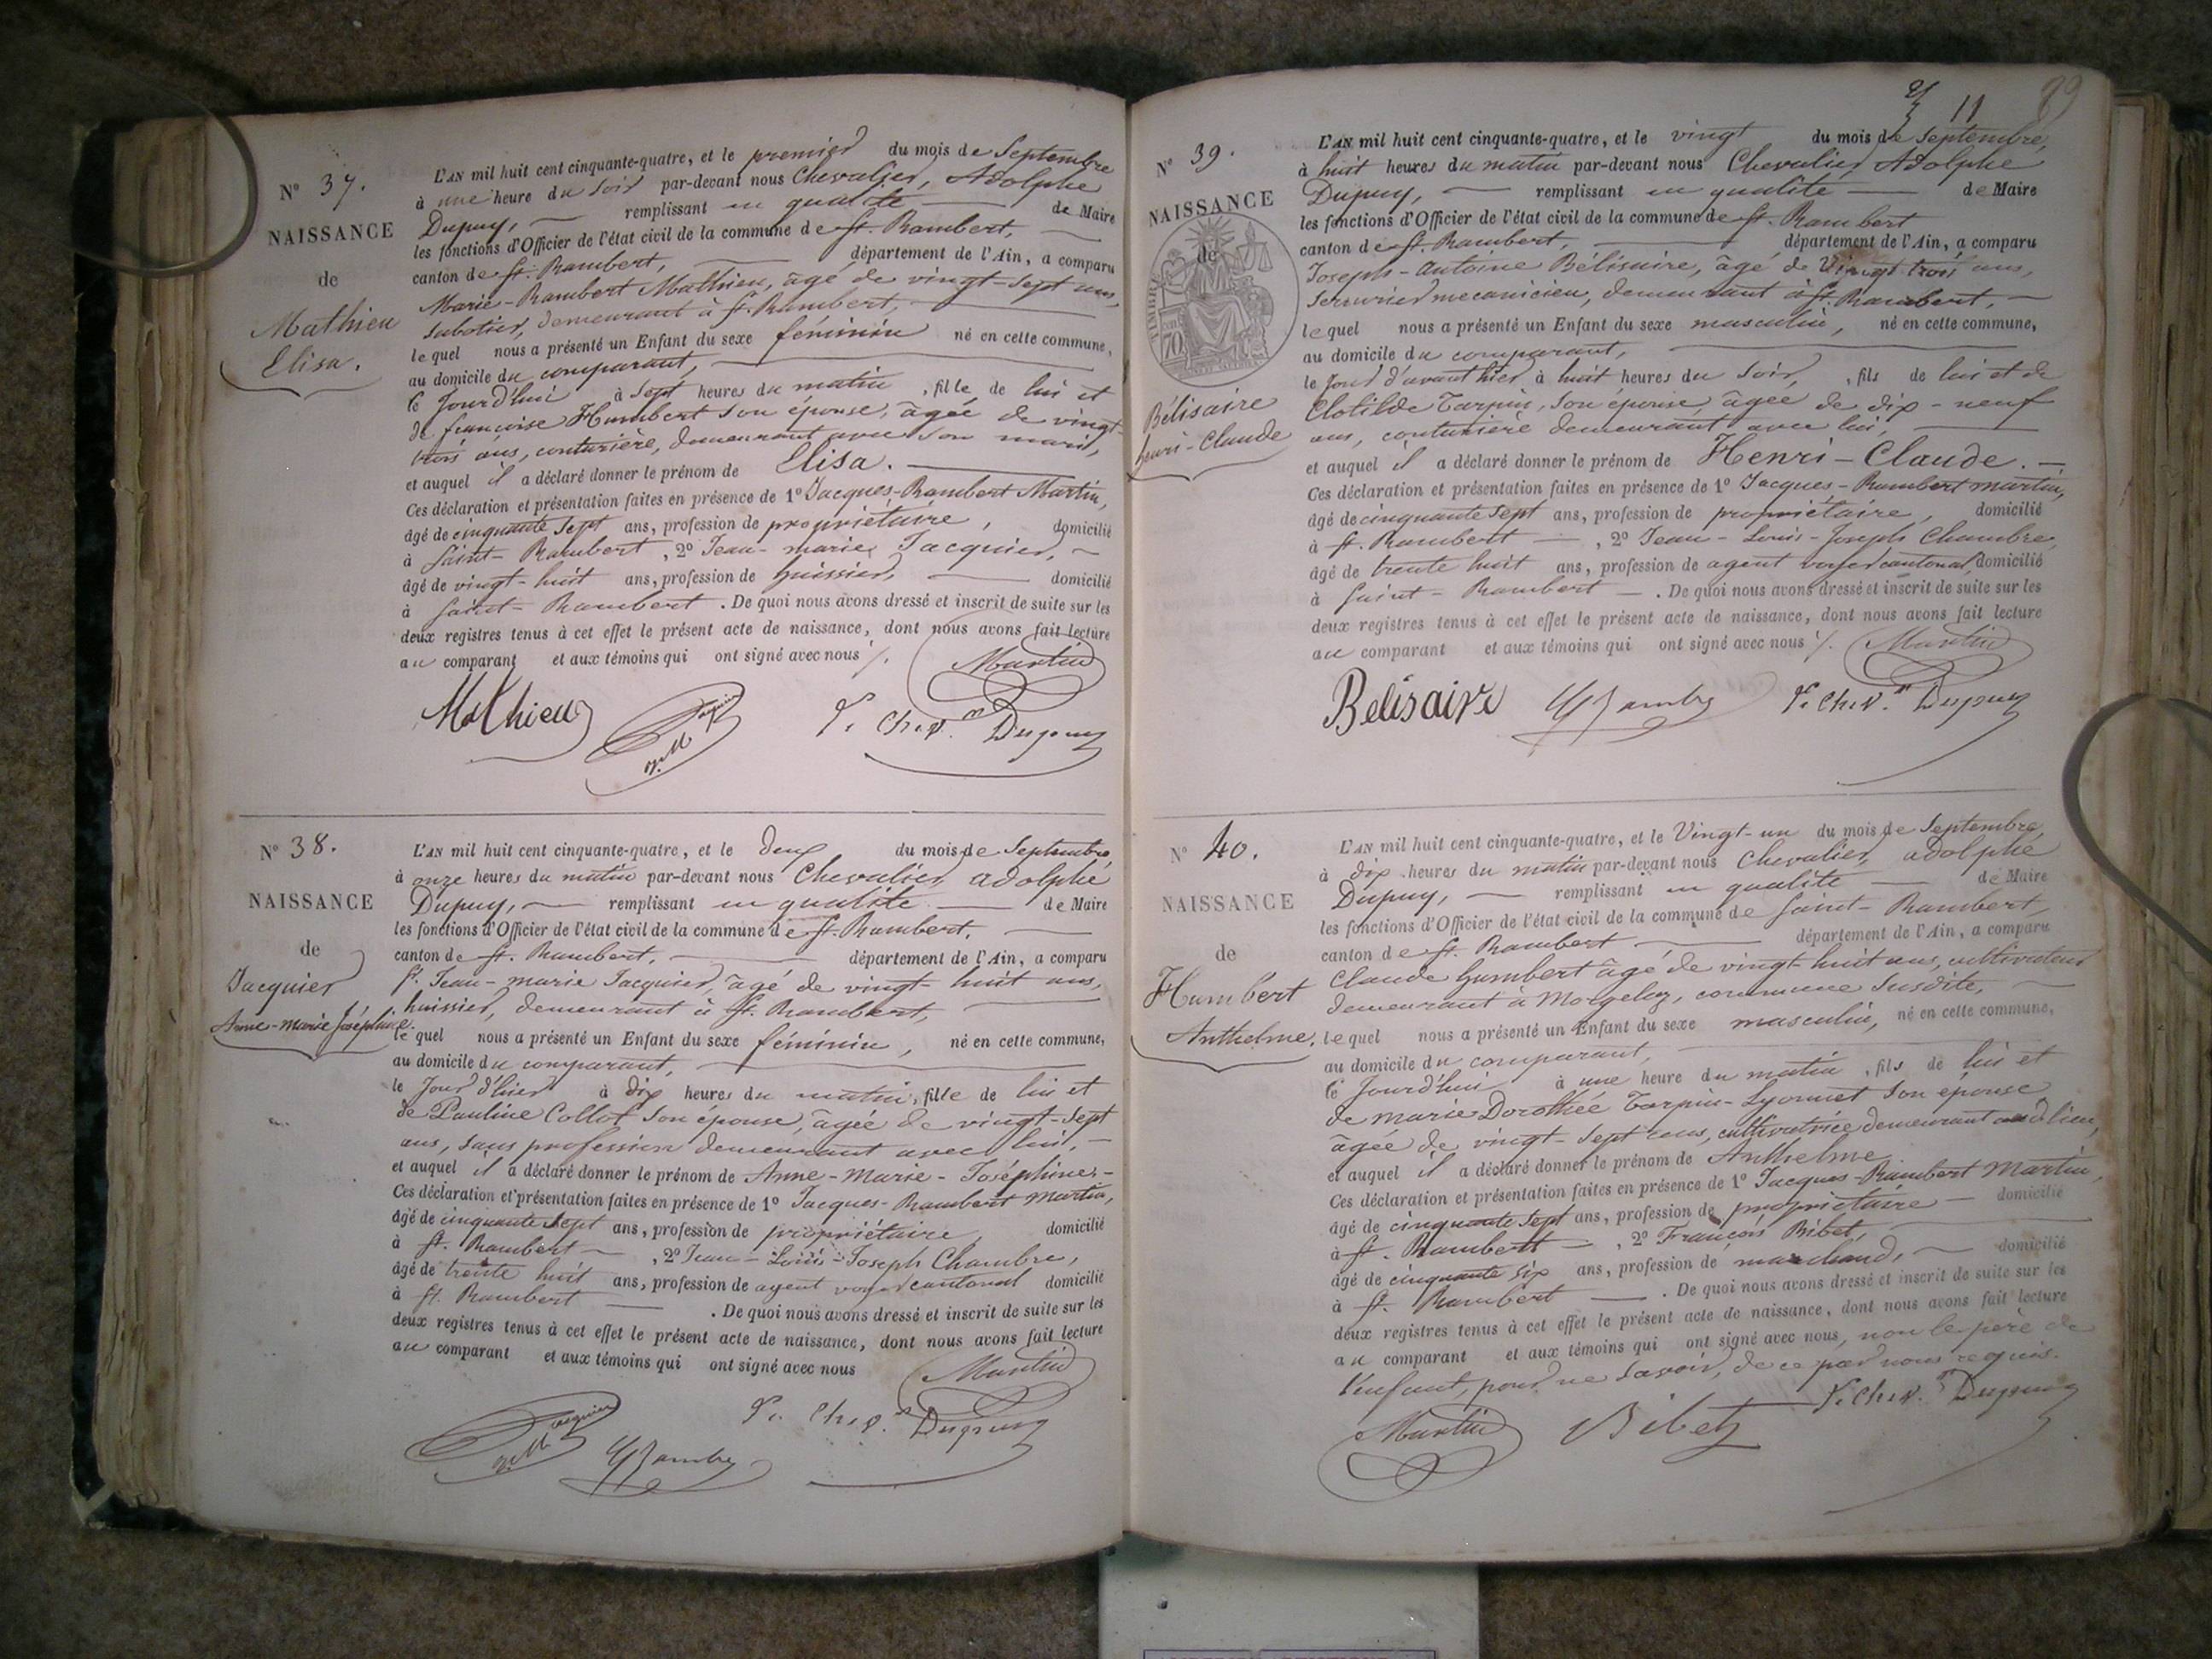 N° 37.
NAISSANCE
de
Mathieu
Elisa.
L'AN mil huit cent cinquante-quatre, et le premier du mois de Septembre
à une heure du soir par-devant nous Chevalier, Adolphe
Dupuy, remplissant en qualité de Maire
les fonctions d'Officier de l'état civil de la commune de St. Rambert,
canton de St. Rambert, département de l'Ain, a comparu
Marie-Rambert Mathieu, âgé de vingt-sept ans,
Sabotier, demeurant à St. Rambert,
lequel nous a présenté un Enfant du sexe féminin né en cette commune,
au domicile du comparant,
le jourd'hui à sept heures du matin, fille de lui et
de françoise Humbert son épouse, âgée de vingt
trois ans, couturière, demeurant avec son mari,
et auquel il a déclaré donner le prénom de Elisa.
Ces déclaration et présentation faites en présence de 1° Jacques-Rambert Martin,
âgé de cinquante sept ans, profession de propriétaire, domicilié
à Saint-Rambert, 2° Jean-marie Jacquier,
âgé de vingt-huit ans, profession de huissier, domicilié
à Saint-Rambert. De quoi nous avons dressé et inscrit de suite sur les
deux registres tenus à cet effet le présent acte de naissance, dont nous avons fait lecture
au comparant et aux témoins qui ont signé avec nous %.
Martin
Mathieu Jacquier Chev. Dupuy
N° 38.
NAISSANCE
de
Jacquier
Anne-marie Joséphine.
L'AN mil huit cent cinquante-quatre, et le deux du mois de Septembre,
à onze heures du matin par-devant nous Chevalier, adolphe
Dupuy, remplissant en qualité de Maire
les fonctions d'Officier de l'état civil de la commune de St. Rambert,
canton de St. Rambert, département de l'Ain, a comparu
Sr. Jean-marie Jacquier, âgé de vingt-huit ans,
huissier, demeurant à St. Rambert,
lequel nous a présenté un Enfant du sexe féminin, né en cette commune,
au domicile du comparant,
le jour d'hier à dix heures du matin, fille de lui et
de Pauline Collot son épouse, âgée de vingt-sept
ans, sans profession demeurant avec lui,
et auquel il a déclaré donner le prénom de Anne-Marie-Joséphine.
Ces déclaration et présentation faites en présence de 1° Jacques-Rambert Martin,
âgé de cinquante sept ans, profession de propriétaire, domicilié
à St. Rambert, 2° Jean-Louis-Joseph Chambre,
âgé de trente huit ans, profession de agent voyer cantonal domicilié
à St. Rambert. De quoi nous avons dressé et inscrit de suite sur les
deux registres tenus à cet effet le présent acte de naissance, dont nous avons fait lecture
au comparant et aux témoins qui ont signé avec nous
Martin
Jacquier Chambre Chev. Dupuy
11
N° 39.
NAISSANCE
de
TIMBRE
70
Bélisaire
henri-Claude
L'AN mil huit cent cinquante-quatre, et le vingt du mois de Septembre,
à huit heures du matin par-devant nous Chevalier Adolphe
Dupuy, remplissant en qualité de Maire
les fonctions d'Officier de l'état civil de la commune de St. Rambert
canton de St. Rambert, département de l'Ain, a comparu
Joseph-antoine Bélisaire, âgé de Vingt trois ans,
Serrurier mecanicien, demeurant à St. Rambert,
lequel nous a présenté un Enfant du sexe masculin, né en cette commune,
au domicile du comparant,
le jour d'avant hier à huit heures du soir, fils de lui et de
Clotilde Tarpin, son épouse, âgée de dix-neuf
ans, couturière demeurant avec lui,
et auquel il a déclaré donner le prénom de Henri-Claude.
Ces déclaration et présentation faites en présence de 1° Jacques-Rambert martin,
âgé de cinquante sept ans, profession de propriétaire, domicilié
à St. Rambert, 2° Jean-Louis-Joseph Chambre,
âgé de trente huit ans, profession de agent voyer cantonal, domicilié
à Saint-Rambert. De quoi nous avons dressé et inscrit de suite sur les
deux registres tenus à cet effet le présent acte de naissance, dont nous avons fait lecture
au comparant et aux témoins qui ont signé avec nous %.
Martin
Belisaire Chambre Chev. Dupuy
N° 40.
NAISSANCE
de
Humbert
Anthelme.
L'AN mil huit cent cinquante-quatre, et le Vingt-un du mois de Septembre,
à dix heures du matin par-devant nous Chevalier, adolphe
Dupuy, remplissant en qualité de Maire
les fonctions d'Officier de l'état civil de la commune de Saint-Rambert,
canton de St. Rambert département de l'Ain, a comparu
Claude humbert âgé de vingt-huit ans, cultivateur
demeurant à Morgelaz, commune susdite,
lequel nous a présenté un Enfant du sexe masculin, né en cette commune,
au domicile du comparant,
le jourd'hui à une heure du matin, fils de lui et
de marie Dorothée Tarpin-Lyonnet son épouse
âgée de vingt-sept ans, cultivatrice demeurant aud. lieu,
et auquel il a déclaré donner le prénom de Anthelme
Ces déclaration et présentation faites en présence de 1° Jacques-Rambert Martin,
âgé de cinquante sept ans, profession de propriétaire domicilié
à St. Rambert, 2° François Bibet,
âgé de cinquante six ans, profession de marchand, domicilié
à St. Rambert. De quoi nous avons dressé et inscrit de suite sur les
deux registres tenus à cet effet le présent acte de naissance, dont nous avons fait lecture
au comparant et aux témoins qui ont signé avec nous, non le père de
l'enfant, pour ne savoir, de ce par nous requis.
Martin Bibet Chev. Dupuy